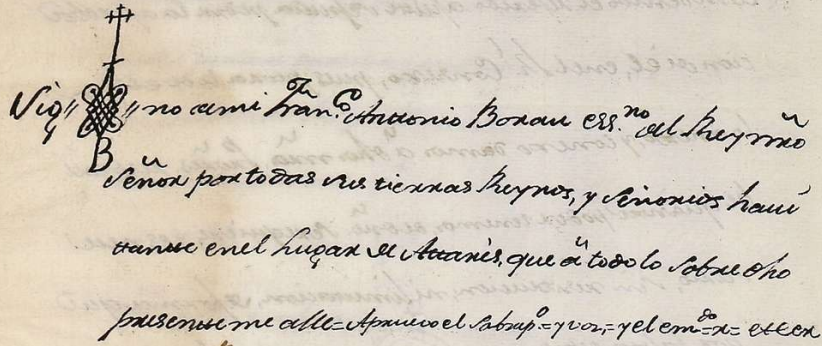 Sig no de mi Fran.co Antonio Borau ess.no del Rey nro
B
Señor por todas sus tierras Reynos, y Señorios havi
tante en el Lugar de Atarés, que a todo lo sobredho
presente me alle = Apruevo el sobrep.o = y vos, = y el em.do = = etcer